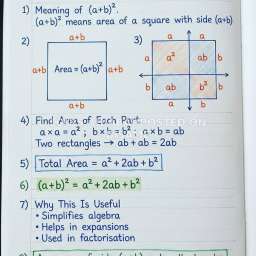 1) Meaning of (a+b)².
(a+b)² means area of a square with side (a+b)
2) a+b 3) a b
a+b Area = (a+b)² a+b a a² ab b
a ab b² b
a+b a b
4) Find Area of Each Part
a × a = a² ; b × b = b² ; a × b = ab
Two rectangles → ab + ab = 2ab
5) Total Area = a² + 2ab + b²
6) (a+b)² = a² + 2ab + b²
7) Why This Is Useful
• Simplifies algebra
• Helps in expansions
• Used in factorisation